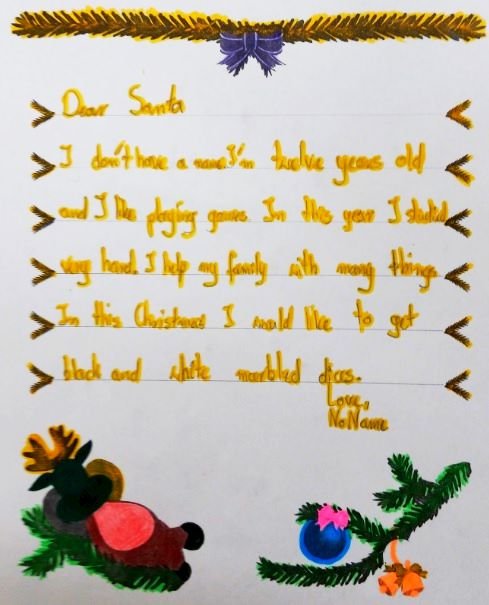 Dear Santa
I don't have a name. I'm twelve years old
and I like playing games. In this year I studied
very hard. I help my family with many things.
In this Christmas I would like to get
black and white marbled dices.
Love,
NoName